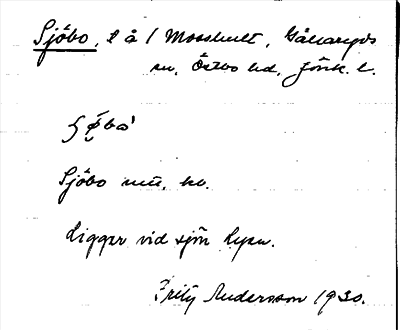 Sjöbo, l å 1 Mosshult, Gällaryds
sn, Östbo hd, Jönk. l.
Sjöbo
Ligger vid sjön
Fritz Andersson 1930.